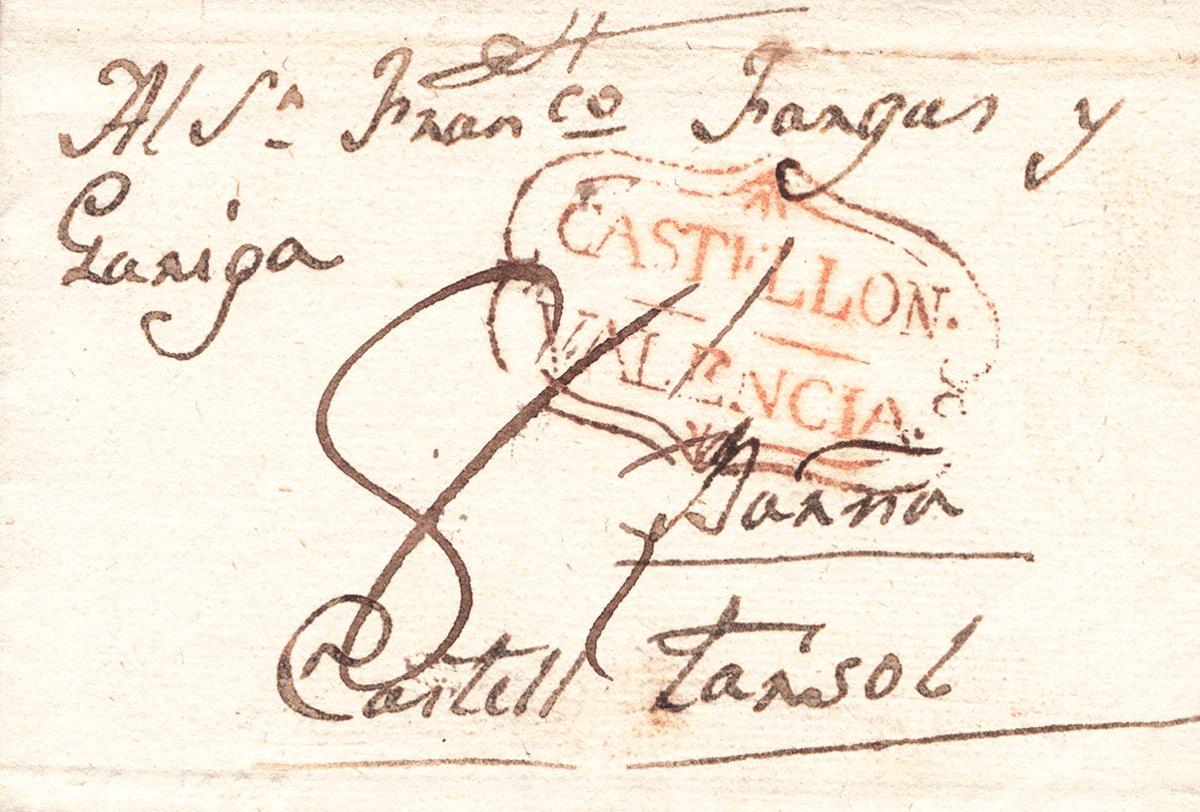 Al Sr. Franco Fargas y
Gariga
CASTELLON.
VALENCIA.
8
Barña
Castell Tarsol